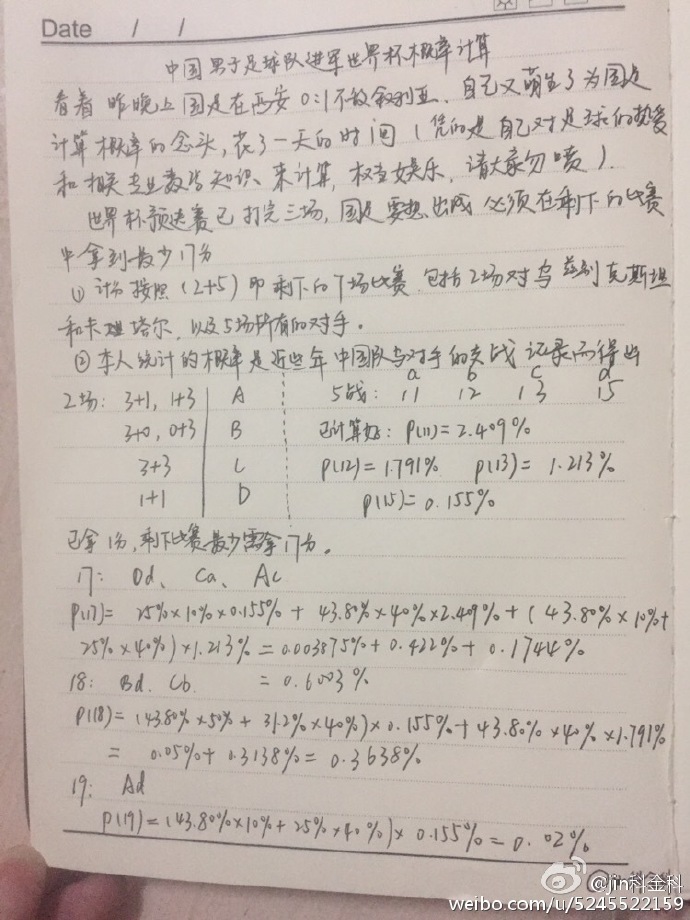 Date / /
中国男子足球队进军世界杯概率计算
看着昨晚上国足在西安0:1不敌叙利亚、自己又萌生了为国足
计算概率的念头,花了一天的时间(凭的是自己对足球的热爱
和相关专业数学知识来计算,权当娱乐,请大家勿喷).
世界杯预选赛已打完三场,国足要想出线必须在剩下的比赛
中拿到最少17分
①计分按照(2+5)即剩下的7场比赛,包括2场对乌兹别克斯坦
和卡塔尔,以及5场所有的对手。
②本人统计的概率是近些年中国队与对手的交战记录而得出
2场: 3+1, 1+3 A 5战: a 11 b 12 c 13 d 15
3+0, 0+3 B 已计算好: P(11)=2.409%
3+3 C P(12)=1.791% P(13)=1.213%
1+1 D P(15)=0.155%
已拿1分,剩下比赛最少需拿17分。
17: Dd、Ca、Ac
P(17)= 25%×10%×0.155% + 43.80%×40%×2.409% + (43.80%×10%+
25%×40%)×1.213% = 0.003875%+0.422%+0.1744%
18: Bd. Cb. = 0.6003%
P(18)=(43.80%×50%+31.2%×40%)×0.155%+43.80%×40%×1.791%
= 0.05%+0.3138%=0.3638%
19: Ad
P(19)=(43.80%×10%+25%×40%)×0.155%=0.02%
@jin科金科
weibo.com/u/5245522159